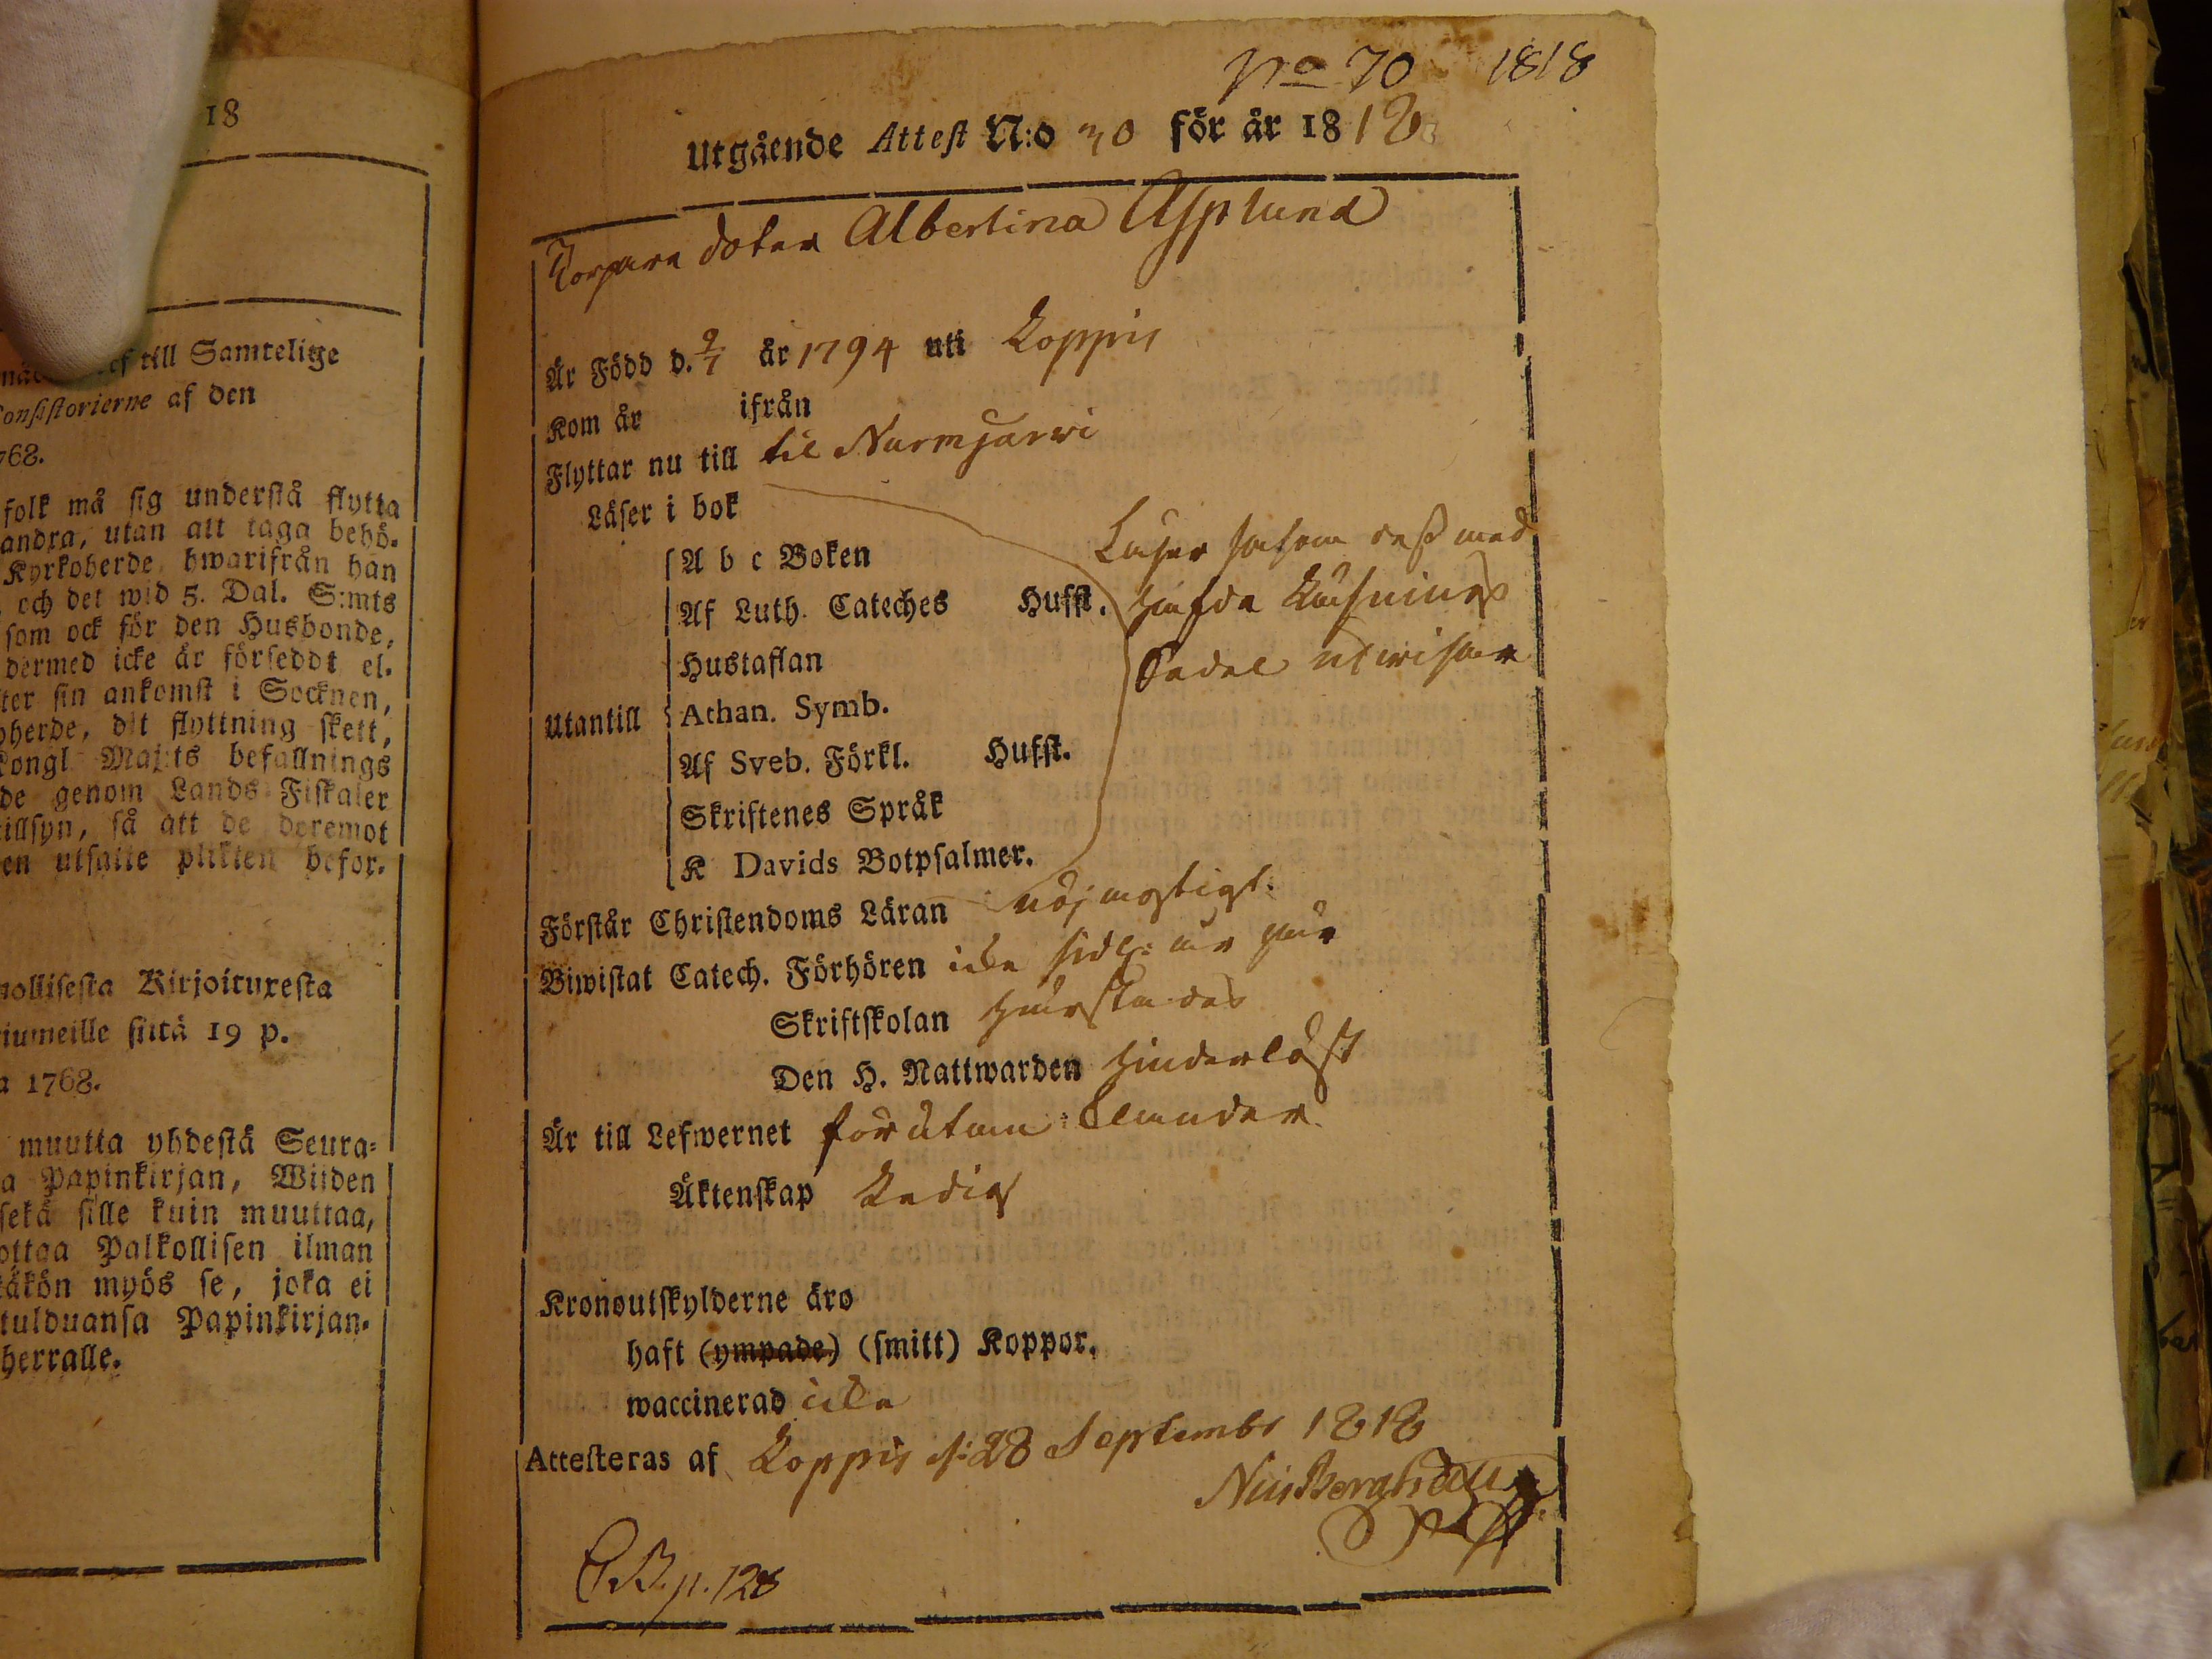 18
till Samtelige
Consistorierne af den
768.
folk må sig understå flytta
andra, utan att taga behö-
Kyrkoherde hwarifrån han
och det wid 5. Dal. S:mts
som ock för den Husbonde,
dermed icke är förseddt el-
ter sin ankomst i Socknen,
oherde, dit flyttning skett,
Kongl Maj:ts befallnings
de genom Lands Fiskaler
tillsyn, så att de deremot
en utsatte plikten befor-
Kirjoituxesta
siitä 19 p.
a 1768.
muutta yhdestä Seura-
a Papinkirjan, Wiiden
sekä sille kuin muuttaa,
ottaa Palkollisen ilman
käkön myös se, joka ei
tulduansa Papinkirjan-
herralle.
No 70 1818
Utgående Attest N:o 70 för år 1818
Torpare doter Albertina Asplund
Är Född d. 9/7 år 1794 uti Loppis
Kom år ifrån
Flyttar nu till til Nurmjärwi
Läser i bok
A b c Boken Läser såsom med
Af Luth. Cateches Hufst. hafda Läsnings
Hustaflan Sedel utwisar
Utantill Athan. Symb.
Af Sveb. Förkl. Hufst.
Skriftenes Språk
K Davids Botpsalmer.
Förstår Christendoms Läran nöjagtigt.
Biwistat Catech. Förhören icke sidl: år här
Skriftskolan härstädes
Den H. Nattwarden hinderlöst
Är till Lefwernet förutan Clander.
Äktenskap Ledig
Kronoutskylderne äro
haft (ympade) (smitt) Koppor.
waccinerad icke
Attesteras af Loppis d: 28 Septembr 1818
CB. p. 128